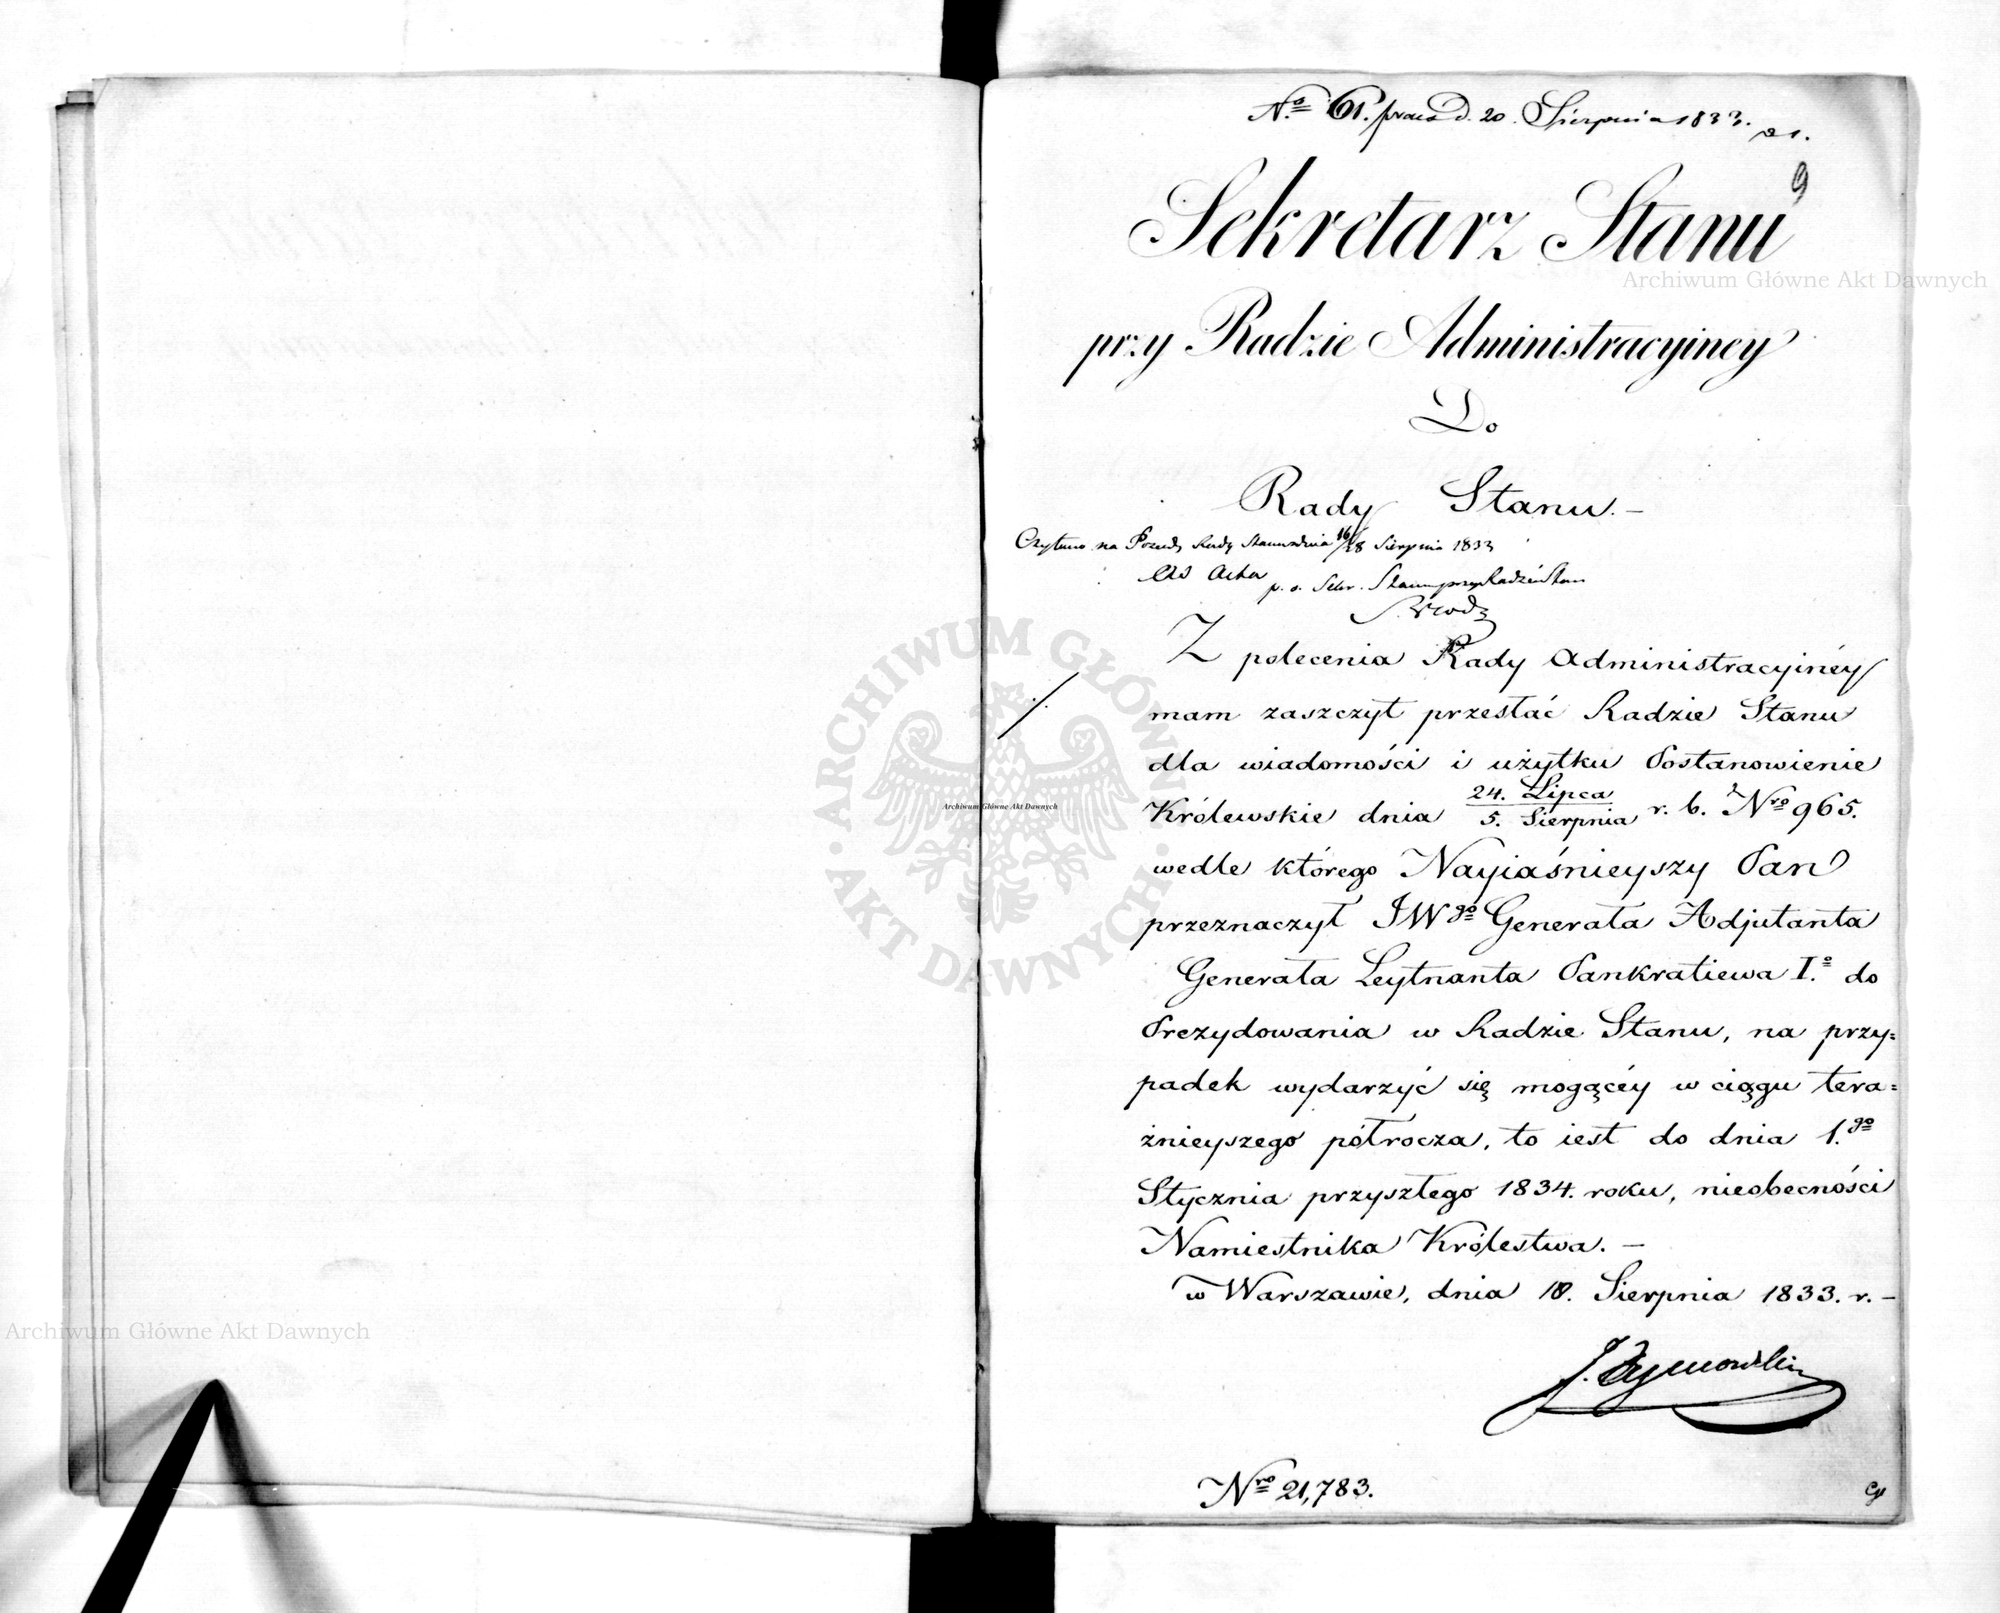 Nº 61. praes. d. 20. Sierpnia 1833.
21.
9
Sekretarz Stanu
przy Radzie Administracyiney
Do
Rady Stanu. –
Czytano na Posiedz. Rady Stanu dnia 16/28 Sierpnia 1833
Ad Acta
p. o. Sekr. Stanu przy Radzie Stanu
Z polecenia Rady Administracyinéy
mam zaszczyt przesłać Radzie Stanu
dla wiadomości i użytku Postanowienie
Królewskie dnia 24. Lipca / 5. Sierpnia r. b. Nro 965.
wedle którego Nayiaśnieyszy Pan
przeznaczył JWgo Generała Adjutanta
Generała Leytnanta Pankratiewa I.º do
Prezydowania w Radzie Stanu, na przy=
padek wydarzyć się mogącéy w ciągu tera=
żnieyszego półrocza, to iest do dnia 1.go
Stycznia przyszłego 1834. roku, nieobecności
Namiestnika Królestwa. –
w Warszawie, dnia 18. Sierpnia 1833. r. –
J. Tymowski
Nro 21,783.
Archiwum Główne Akt Dawnych
Archiwum Główne Akt Dawnych
Archiwum Główne Akt Dawnych
ARCHIWUM GŁÓWNE · AKT DAWNYCH ·